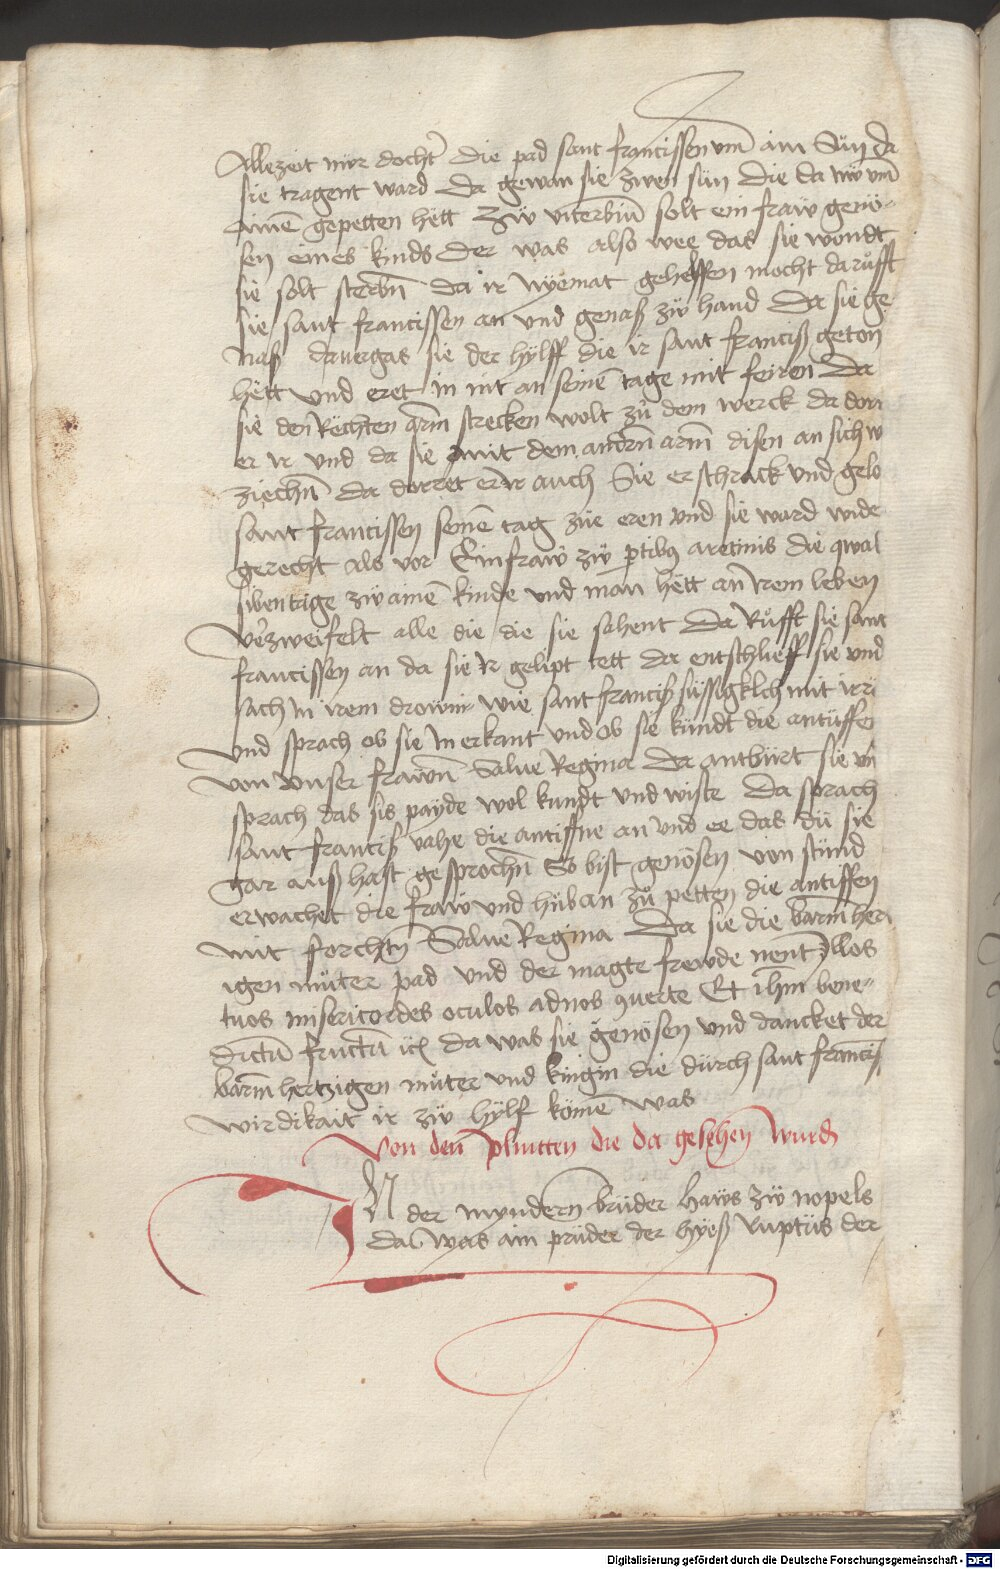 Allezeit nür docht̄ die pad sant francissen vm̄ ain Sün da
sie tragent ward Da gewan sie zwen sün die da nw̄ vm̄
ainē gepetten hëtt Zw̄ viterbiū solt ein fraw̄ genö-
sen eines kinds Der was also wee das sie wondt
sie solt sterbn̄ da ir nyemat gehelffen mocht da rüfft
sie sant francissen an vnd genaß zw̄ hand Da sie ge
naß da vergas sie der hÿlff die ir sant franciß geton
hëtt vnd eret in nit an seinē tage mit feiren Da
sie den Rëchten arm̄ strecken wolt zü dem werck da dorr
er ir vnd da sie mit dem andrn̄ arm̄ disen an sich w
ziechn̄ da dorret er ir auch Sie erschrack vnd gelo
sant francissen seinē tag züe eren vnd sie ward wide
gerecht als vor Ein fraw̄ zw̄ ptibꝰ aretinis die qwal
siben tage zw̄ ainē kinde vnd man hëtt an irem leben
verzweifelt alle die die sie sahent Da Rüfft sie sant
francissen an da sie ir gelipt tett da entschlieff sie vnd
sach in irem drowm wie sant franciß süssigklich mit ir ri
vnd sprach ob sie in erkant vnd ob sie kündt die antiffen
von vnser frawn̄ Salue Regina Da antbürt sie vn̄
sprach das sis payde wol kundt vnd wiste Da sprach
sant franciß vahe die antiffne an vnd ee das dü sie
gar auß hast gesprochn̄ So bist genösen von stünd
erwachet die fraw̄ vnd hüb an zü petten die antiffen
mit forchtn̄ Salue Regina Da sie die barm̄ hertz
igen müter pad vnd der magte frewde nent Illos
tuos misericordes oculos ad nos ꝯuerte Et ihm̄ bene-
dictū fructū ꝛc̄ da was sie genösen vnd dancket der
barm̄hertzigen müter vnd kingin die dürch sant franciß
wirdikait ir zw̄ hÿlf kömē was
Von den plinten die da gesehen wurdn̄
IN der myndern brüder haüs zw̄ nopels
da was ain prüder der hyeß ruptüs der
Digitalisierung gefördert durch die Deutsche Forschungsgemeinschaft - DFG